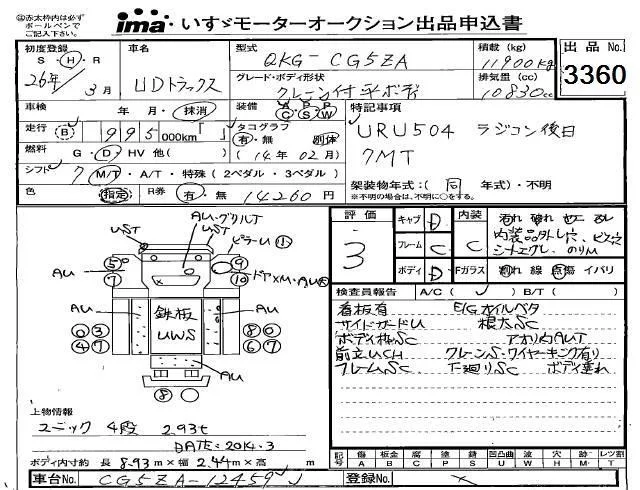 ㊟赤太枠内は必ず
ボールペンで
ご記入下さい。
ima いすゞモーターオークション出品申込書
初度登録
S・H・R
26年3月
車名
UDトラックス
型式
QKG-CG5ZA
グレード・ボディ形状
クレーン付平ボディ
積載(kg)
11900kg
排気量(cc)
10830cc
出品No.
3360
車検 年・月・抹消
走行 (B) 995 000km「 」
燃料 G・D・HV 他( )
シフト 7 M/T・A/T・特殊(2ペダル・3ペダル)
色 (指定) R券 有・無 14260円
装備 A B P
C S W
タコグラフ
有・無 別体
(14年02月)
特記事項
URU504 ラジコン後日
7MT
架装物年式:( 同 年式)・不明
※不明の場合は、不明に○をする。
AU・グリルT
UST
UST
ピラーU 小
AU
⑤
⑦
⑨
⑩
ドア×M・AU大
AU
AU
鉄板
UWS
⓪③
④⑦
⑧⓪
⑥⑦
AU
⑧
上物情報
ユニック 4段 2.93t
DATE:2014.3
ボディ内寸約 長 8.93m×幅 2.44m×高 m
車台No. CG5ZA-12459
登録No. ×
評価
3
キャブ D
フレーム C
ボディ D
内装 C
Fガラス
汚れ 破れ セニ スレ
内装品外し穴、ビス穴
シートエグレ、のりM
割れ 線 点傷 イバリ
検査員報告 A/C( ✓ ) B/T( )
看板有 E/Gオイルベタ
サイドガードU 根太SC
ボディ枠SC アオリ内AUT
前立UCH クレーンS・ワイヤーキンク有り
フレームSC 下廻りSC ボディ垂れ
記号 傷 板金 腐 塗 錆 凹凸曲 波 穴 跡 レツ割
A B C P S U W H M T